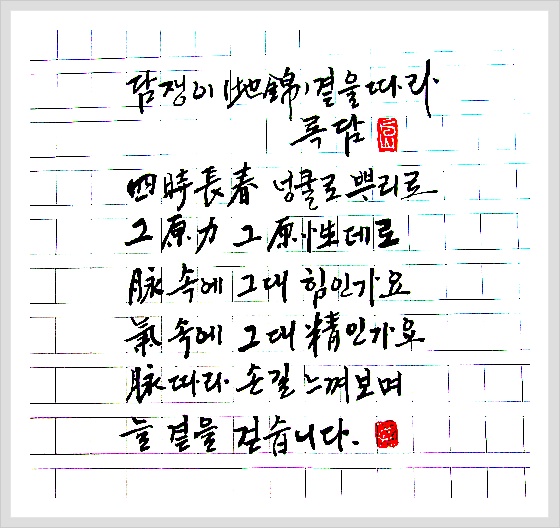 담쟁이(地錦)곁을따라
록담
四時長春 넝쿨로 뿌리로
그 原力 그 原性데로
脉 속에 그대 힘인가요
氣 속에 그대 精인가요
脉따라 손길 느껴보며
늘 곁을 걷습니다.